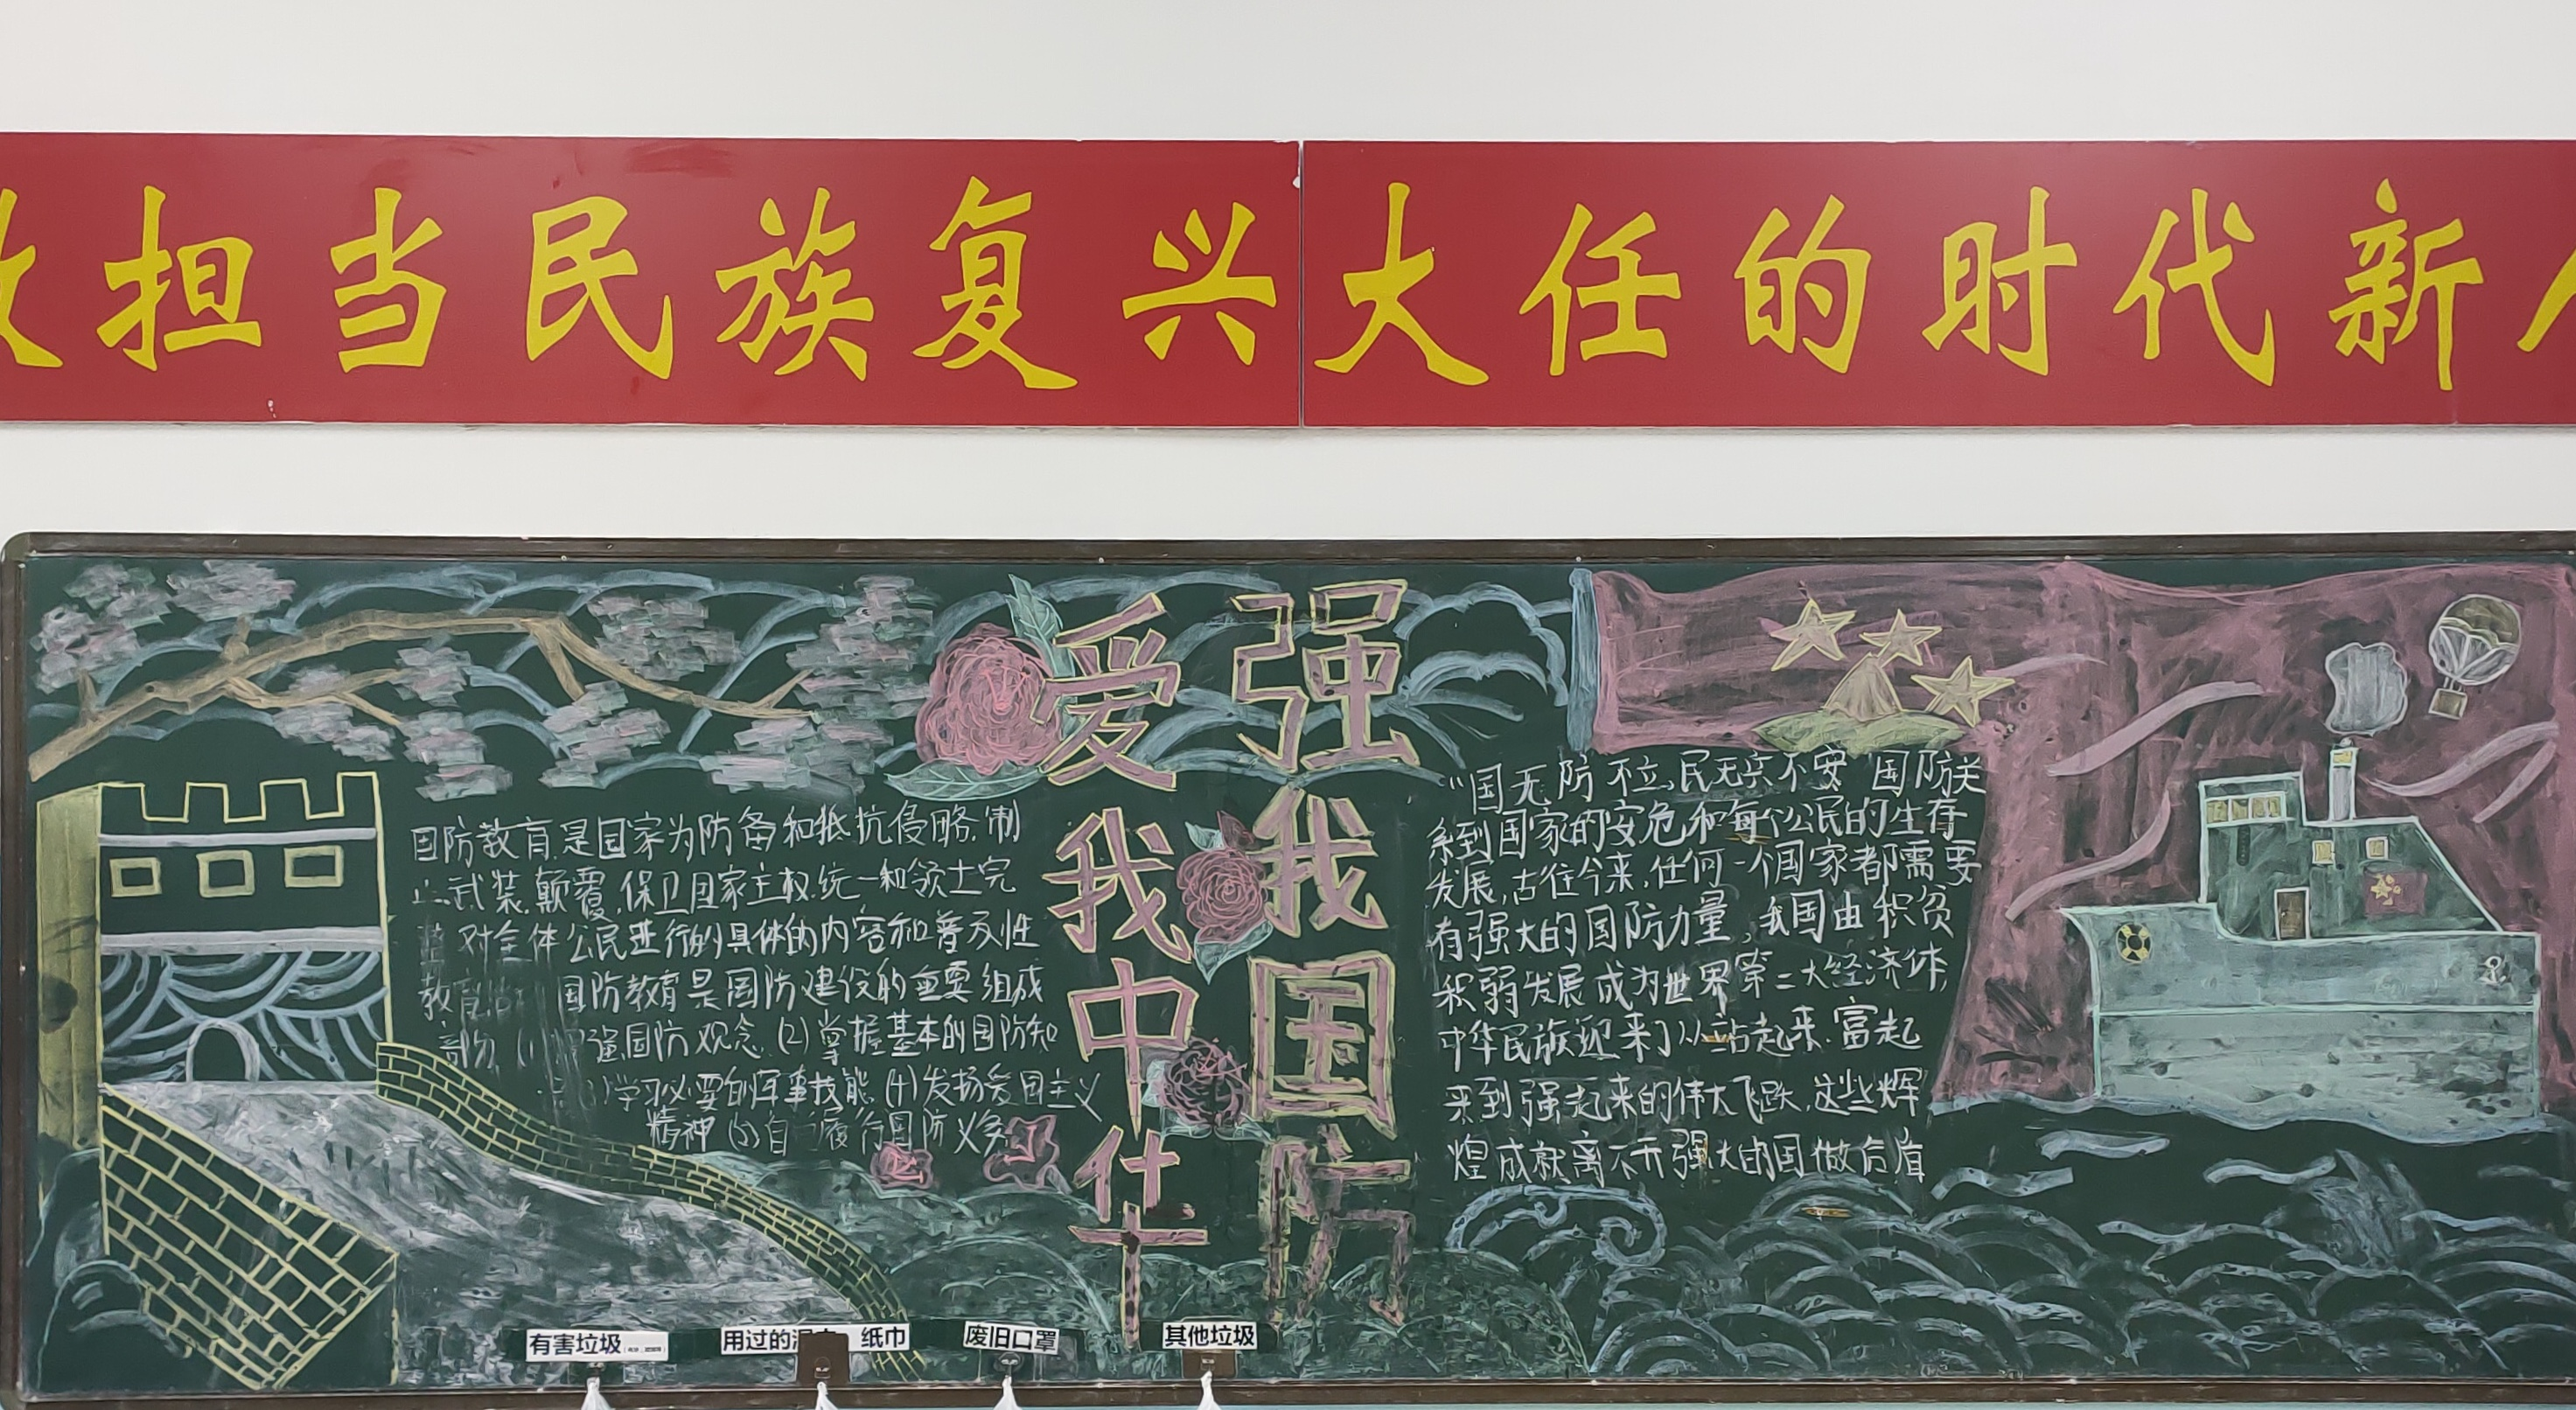 担当民族复兴大任的时代新
强我国防
爱我中华
国防教育是国家为防备和抵抗侵略,制
止武装颠覆,保卫国家主权统一和领土完
整 对全体公民进行的具体的内容和普及性
教育 国防教育是国防建设的重要组成
部分 强国防观念 (2)掌握基本的国防知
学习必要的军事技能 (4)发扬爱国主义
精神 (5)自 履行国防义务
“国无防不立,民无兵不安”国防关
系到国家的安危和每个公民的生存
发展,古往今来,任何一个国家都需要
有强大的国防力量,我国由积贫
积弱发展成为世界第二大经济体,
中华民族迎来了从站起来.富起
来到强起来的伟大飞跃,这些辉
煌成就离不开强大的国做后盾
有害垃圾
用过的 纸巾
废旧口罩
其他垃圾